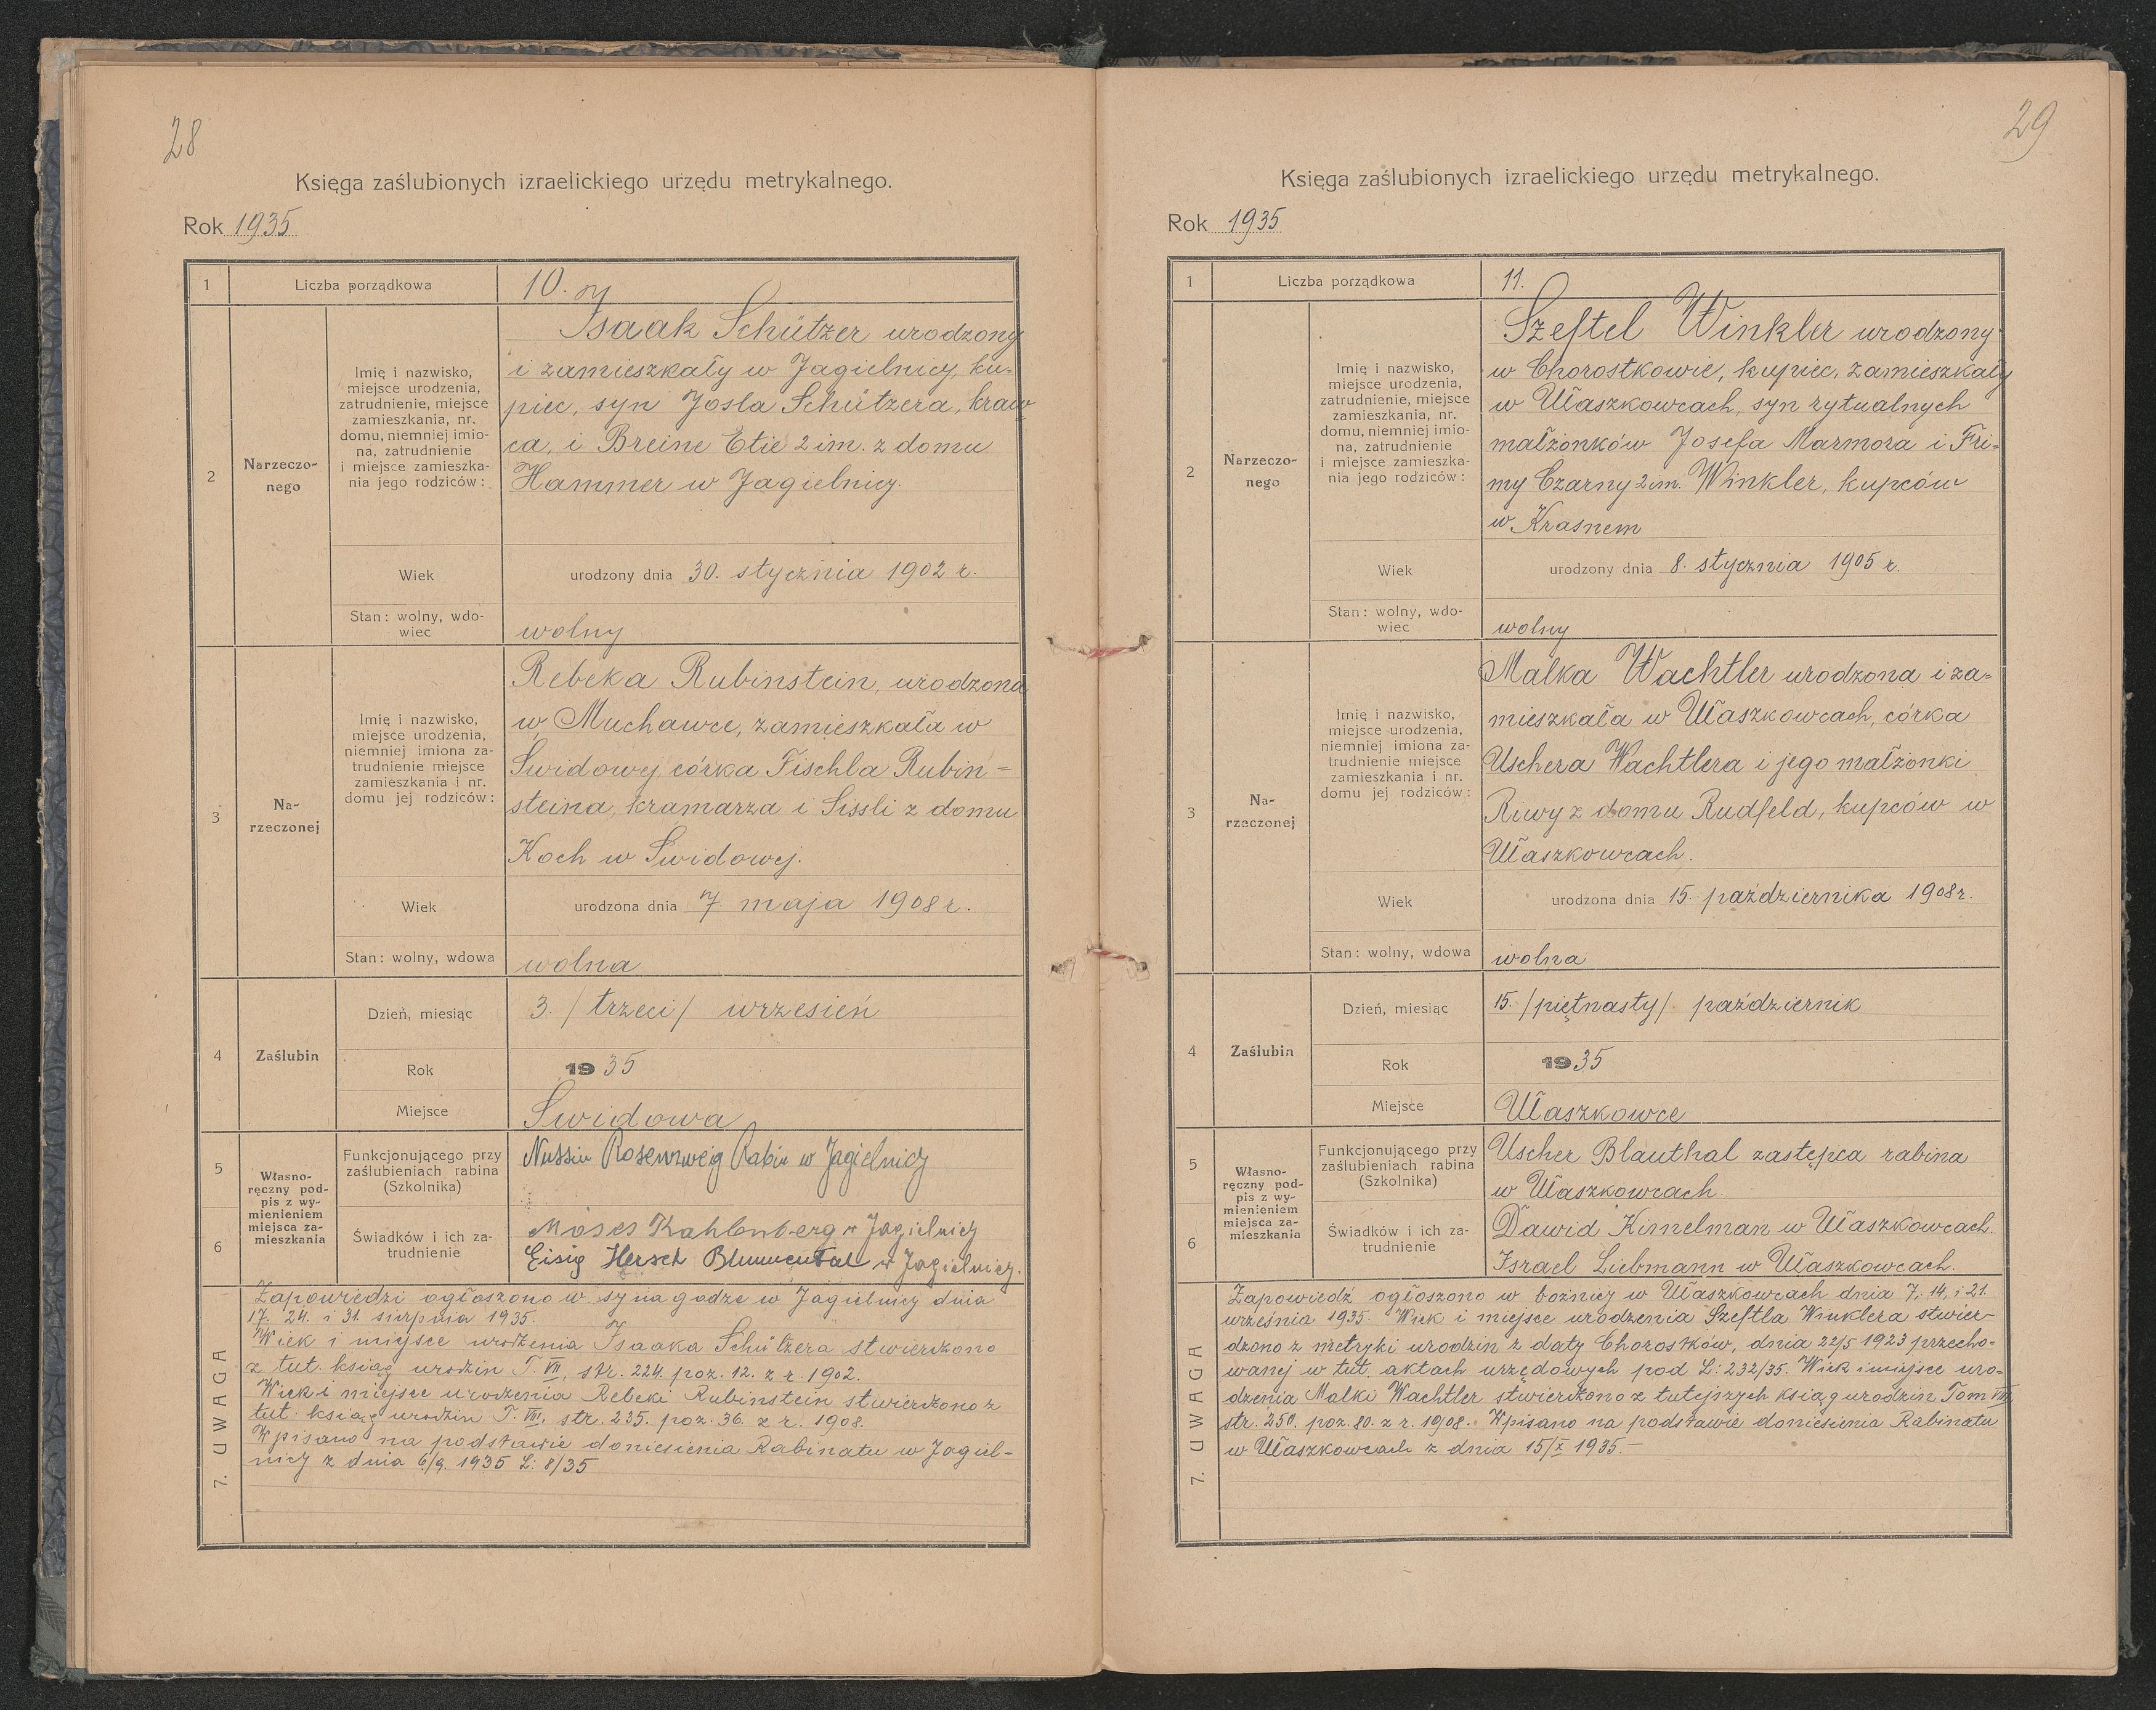 28
Księga zaślubionych izraelickiego urzędu metrykalnego.
Rok 1935
1 Liczba porządkowa 10.
2
Narzeczo-
nego
Imię i nazwisko,
miejsce urodzenia,
zatrudnienie, miejsce
zamieszkania, nr.
domu, niemniej imio-
na, zatrudnienie
i miejsce zamieszka-
nia jego rodziców:
Isaak Schützer urodzony
i zamieszkały w Jagielnicy, ku-
piec, syn Josla Schützera, kraw
ca, i Breine Etie 2 im. z domu
Hammer w Jagielnicy.
Wiek
urodzony dnia 30. stycznia 1902 r.
Stan: wolny, wdo-
wiec
wolny
3
Na-
rzeczonej
Imię i nazwisko,
miejsce urodzenia,
niemniej imiona za-
trudnienie miejsce
zamieszkania i nr.
domu jej rodziców:
Rebeka Rubinstein, urodzona
w Muchawce, zamieszkała w
Świdowej, córka Fischla Rubin=
steina, kramarza i Sissli z domu
Koch w Świdowej.
Wiek
urodzona dnia 7 maja 1908 r.
Stan: wolny, wdowa
wolna
4
Zaślubin
Dzień, miesiąc
3. /trzeci/ wrzesień
Rok
1935
Miejsce
Świdowa
5
6
Własno-
ręczny pod-
pis z wy-
mienieniem
miejsca za-
mieszkania
Funkcjonującego przy
zaślubieniach rabina
(Szkolnika)
Nussin Rosenzweig Rabin w Jagielnicy
Świadków i ich za-
trudnienie
Moses Kahlenberg w Jagielnicy
Eisig Hersch Blumental w Jagielnicy.
7. UWAGA
Zapowiedzi ogłoszono w synagodze w Jagielnicy dnia
17. 24. i 31. sierpnia 1935.
Wiek i miejsce urodzenia Isaaka Schützera stwierdzono
z tut. ksiąg urodzin T. VII, str. 224. poz. 12. z r. 1902.
Wiek i miejsce urodzenia Rebeki Rubinstein stwierdzono z
tut. ksiąg urodzin T. VIII, str. 235. poz. 36. z r. 1908.
Wpisano na podstawie doniesienia Rabinatu w Jagiel-
nicy z dnia 6/9. 1935 L: 8/35
29
Księga zaślubionych izraelickiego urzędu metrykalnego.
Rok 1935
1 Liczba porządkowa 11.
2
Narzeczo-
nego
Imię i nazwisko,
miejsce urodzenia,
zatrudnienie, miejsce
zamieszkania, nr.
domu, niemniej imio-
na, zatrudnienie
i miejsce zamieszka-
nia jego rodziców:
Szeftel Winkler urodzony
w Chorostkowie, kupiec, zamieszkały
w Ułaszkowcach, syn rytualnych
małżonków Josefa Marmora i Fri=
my Czarny 2 im. Winkler, kupców
w Krasnem
Wiek
urodzony dnia 8. stycznia 1905 r.
Stan: wolny, wdo-
wiec
wolny
3
Na-
rzeczonej
Imię i nazwisko,
miejsce urodzenia,
niemniej imiona za-
trudnienie miejsce
zamieszkania i nr.
domu jej rodziców:
Malka Wachtler urodzona i za=
mieszkała w Ułaszkowcach, córka
Uschera Wachtlera i jego małżonki
Riwy z domu Rudfeld, kupców w
Ułaszkowcach.
Wiek
urodzona dnia 15. października 1908 r.
Stan: wolny, wdowa
wolna
4
Zaślubin
Dzień, miesiąc
15. /piętnasty/ październik
Rok
1935
Miejsce
Ułaszkowce
5
6
Własno-
ręczny pod-
pis z wy-
mienieniem
miejsca za-
mieszkania
Funkcjonującego przy
zaślubieniach rabina
(Szkolnika)
Uscher Blauthal zastępca rabina
w Ułaszkowcach.
Świadków i ich za-
trudnienie
Dawid Kimelman w Ułaszkowcach.
Israel Liebmann w Ułaszkowcach.
7. UWAGA
Zapowiedź ogłoszono w bożnicy w Ułaszkowcach dnia 7, 14, i 21.
września 1935. Wiek i miejsce urodzenia Szeftla Winklera stwier-
dzono z metryki urodzin z daty Chorostków, dnia 22/5 1923 przecho=
wanej w tut. aktach urzędowych pod L: 232/35. Wiek i miejsce uro=
dzenia Malki Wachtler stwierdzono z tutejszych ksiąg urodzin Tom VIII,
str. 250. poz. 80. z r. 1908. Wpisano na podstawie doniesienia Rabinatu
w Ułaszkowcach z dnia 15/X 1935.–